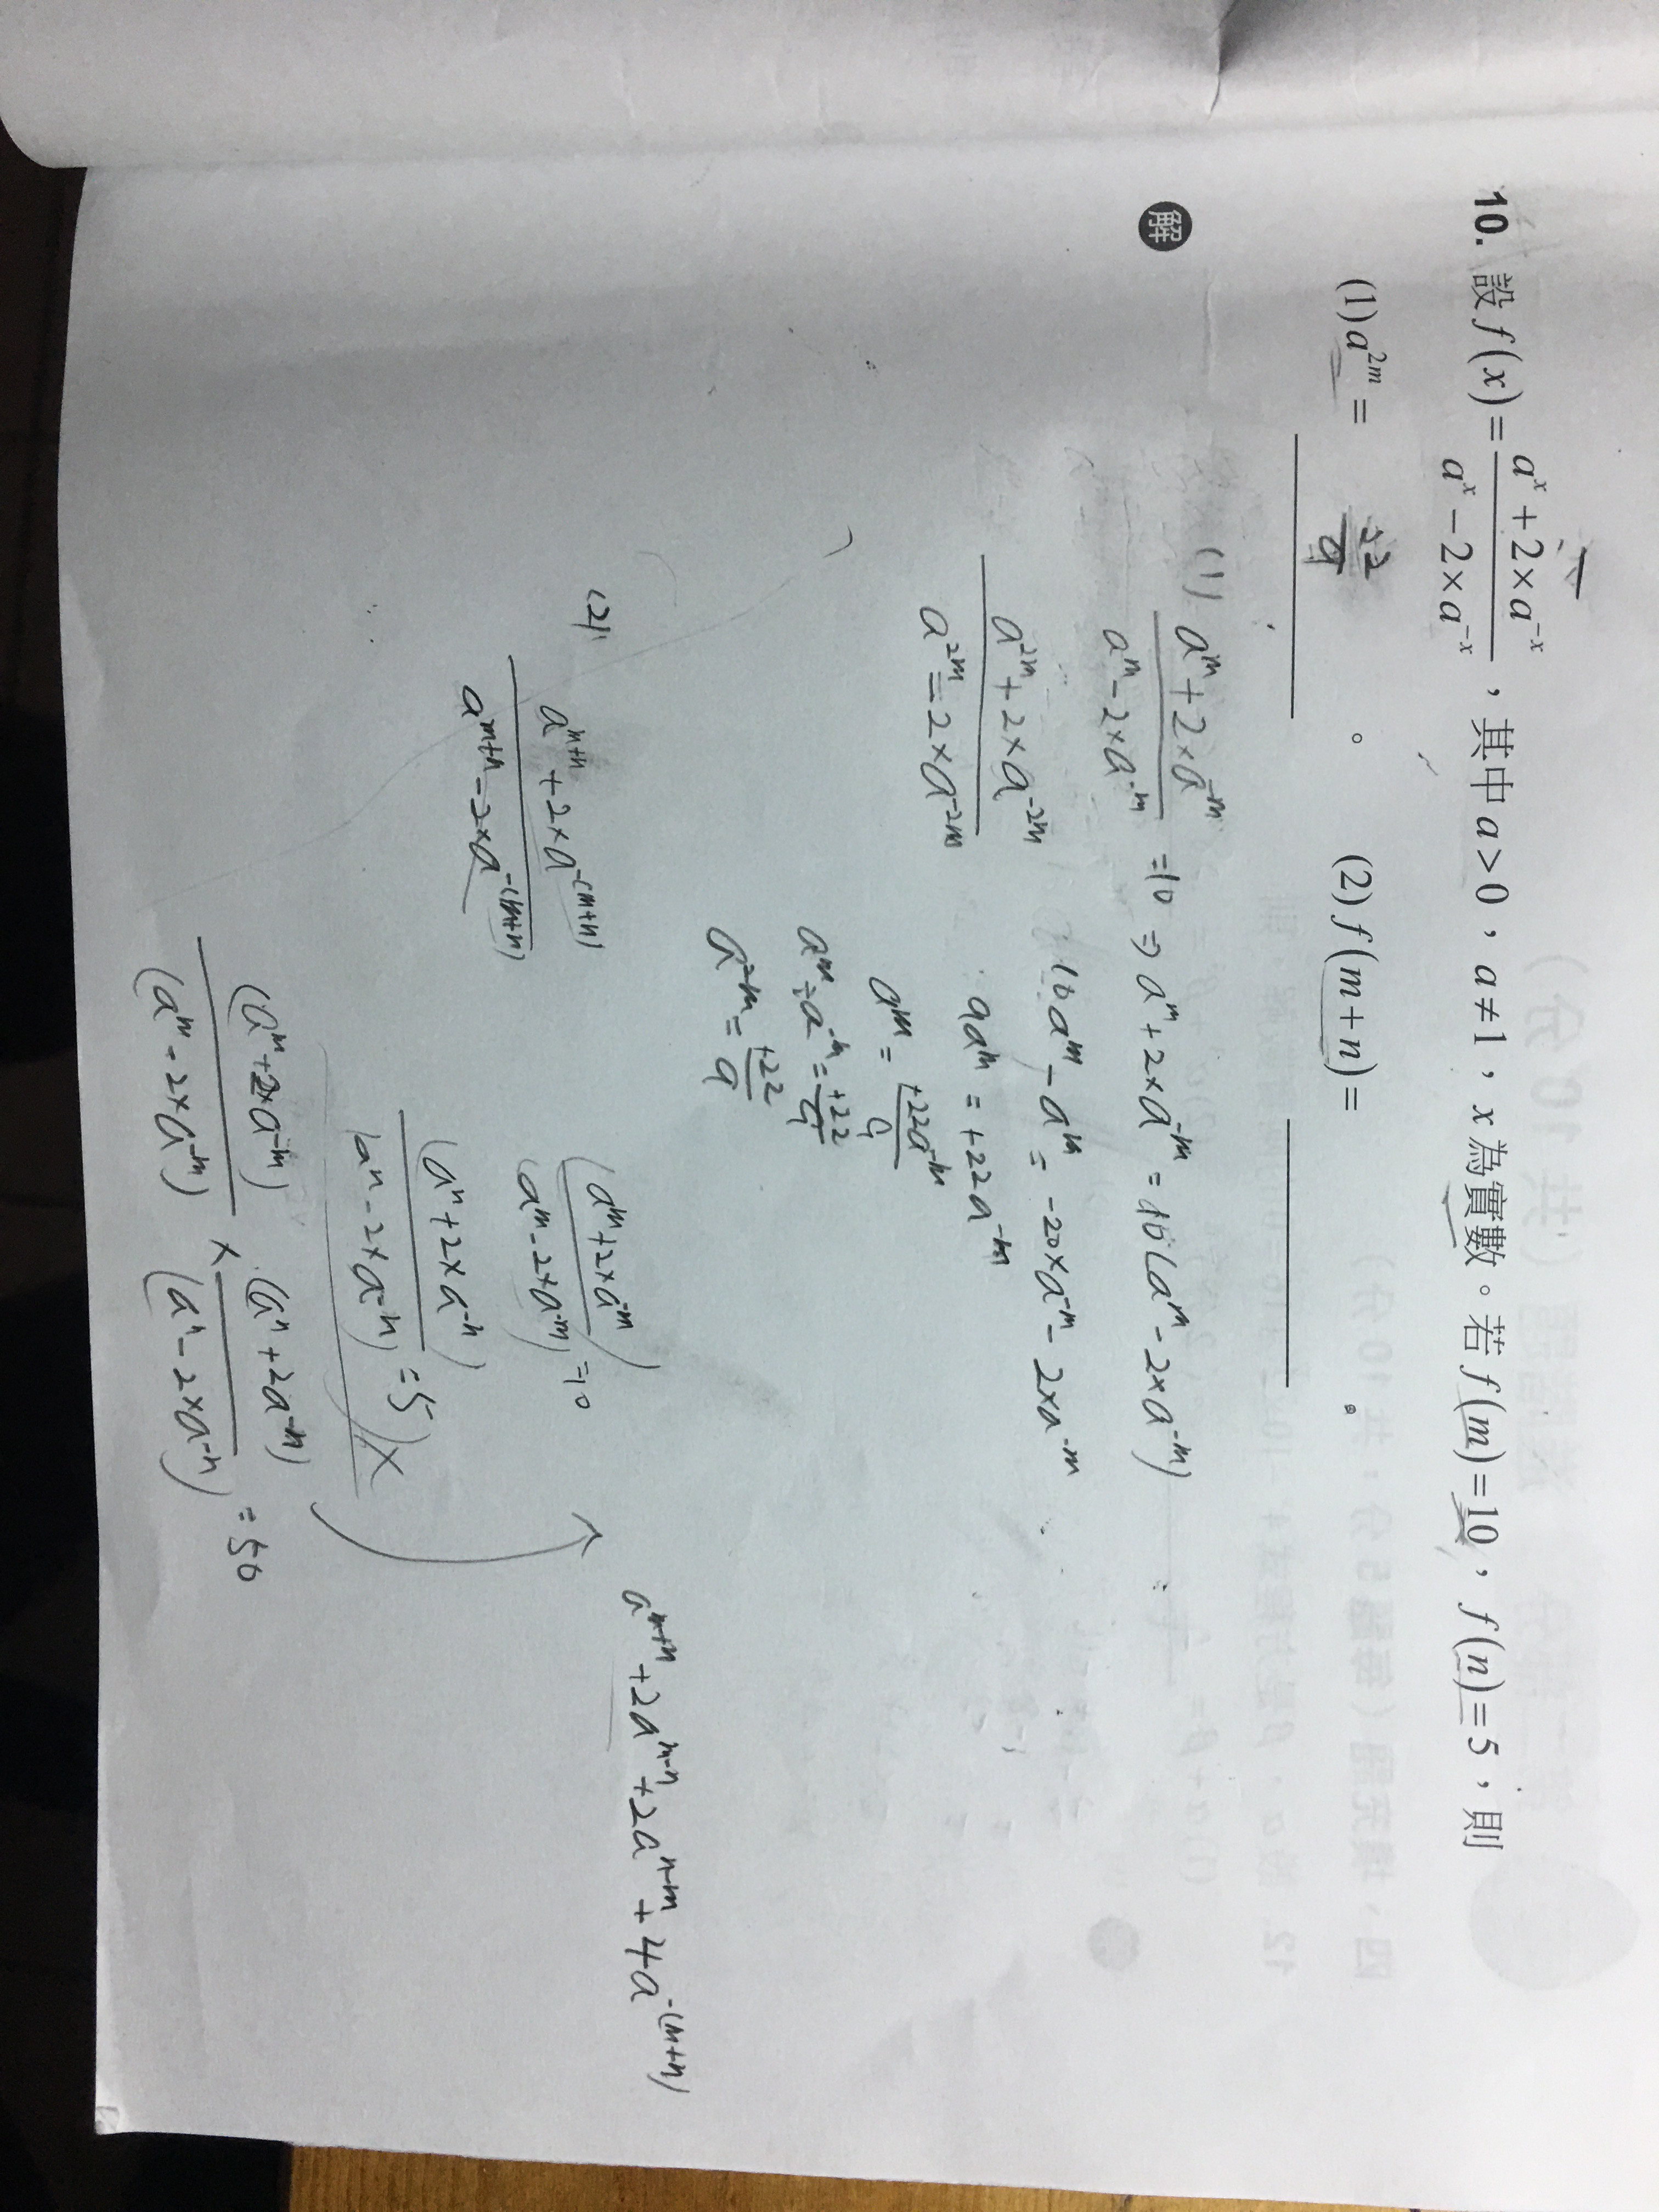 10. 設 f(x) = (a^x + 2×a^-x)/(a^x − 2×a^-x)，其中 a>0，a≠1，x 為實數。若 f(m)=10，f(n)=5，則
(1) a^2m = 22/9 。 (2) f(m+n) = 。
解
(1) (a^m + 2×a^-m)/(a^m − 2×a^-m) = 10 ⇒ a^m + 2×a^-m = 10(a^m − 2×a^-m)
10a^m − a^m = −20×a^-m − 2×a^-m
(a^2m + 2×a^-2m)/(a^2m − 2×a^-2m)
9a^m = +22a^-m
a^m = +22a^-m/9
a^m ÷ a^-m = +22/9
a^2m = +22/9
(2) (a^m+n + 2×a^-(m+n))/(a^m+n − 2×a^-(m+n))
(a^m + 2×a^-m)/(a^m − 2×a^-m) = 10
(a^n + 2×a^-n)/(a^n − 2×a^-n) = 5 ) ×
(a^m + 2×a^-m)/(a^m − 2×a^-m) × (a^n + 2a^-n)/(a^n − 2×a^-n) = 50
a^m+n + 2a^m-n + 2a^n-m + 4a^-(m+n)